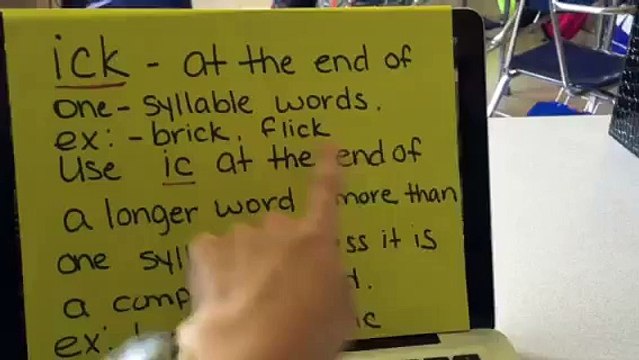 ick - at the end of
one-syllable words.
ex: - brick, flick
Use ic at the end of
a longer word more than
one it is
a
ex: